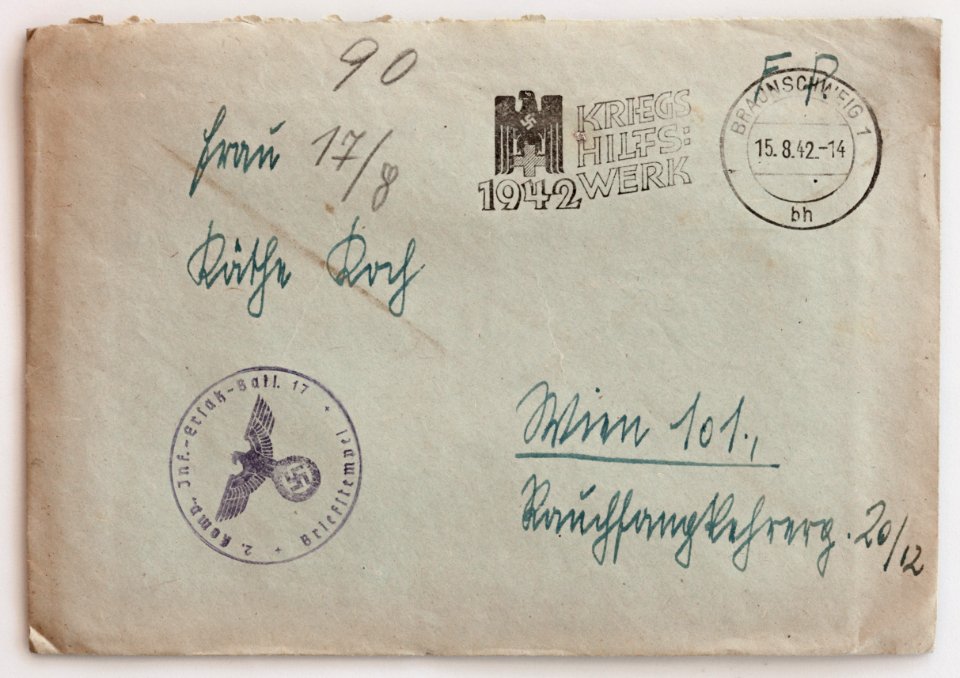 90
F. P.
Frau 17/8
Käthe Koch
1942
KRIEGS
HILFS:
WERK
BRAUNSCHWEIG 1
15.8.42.-14
bh
2. Komp. Inf.-Ersatz-Batl. 17 + Briefstempel +
Wien 101.,
Rauchfangkehrerg. 20/12